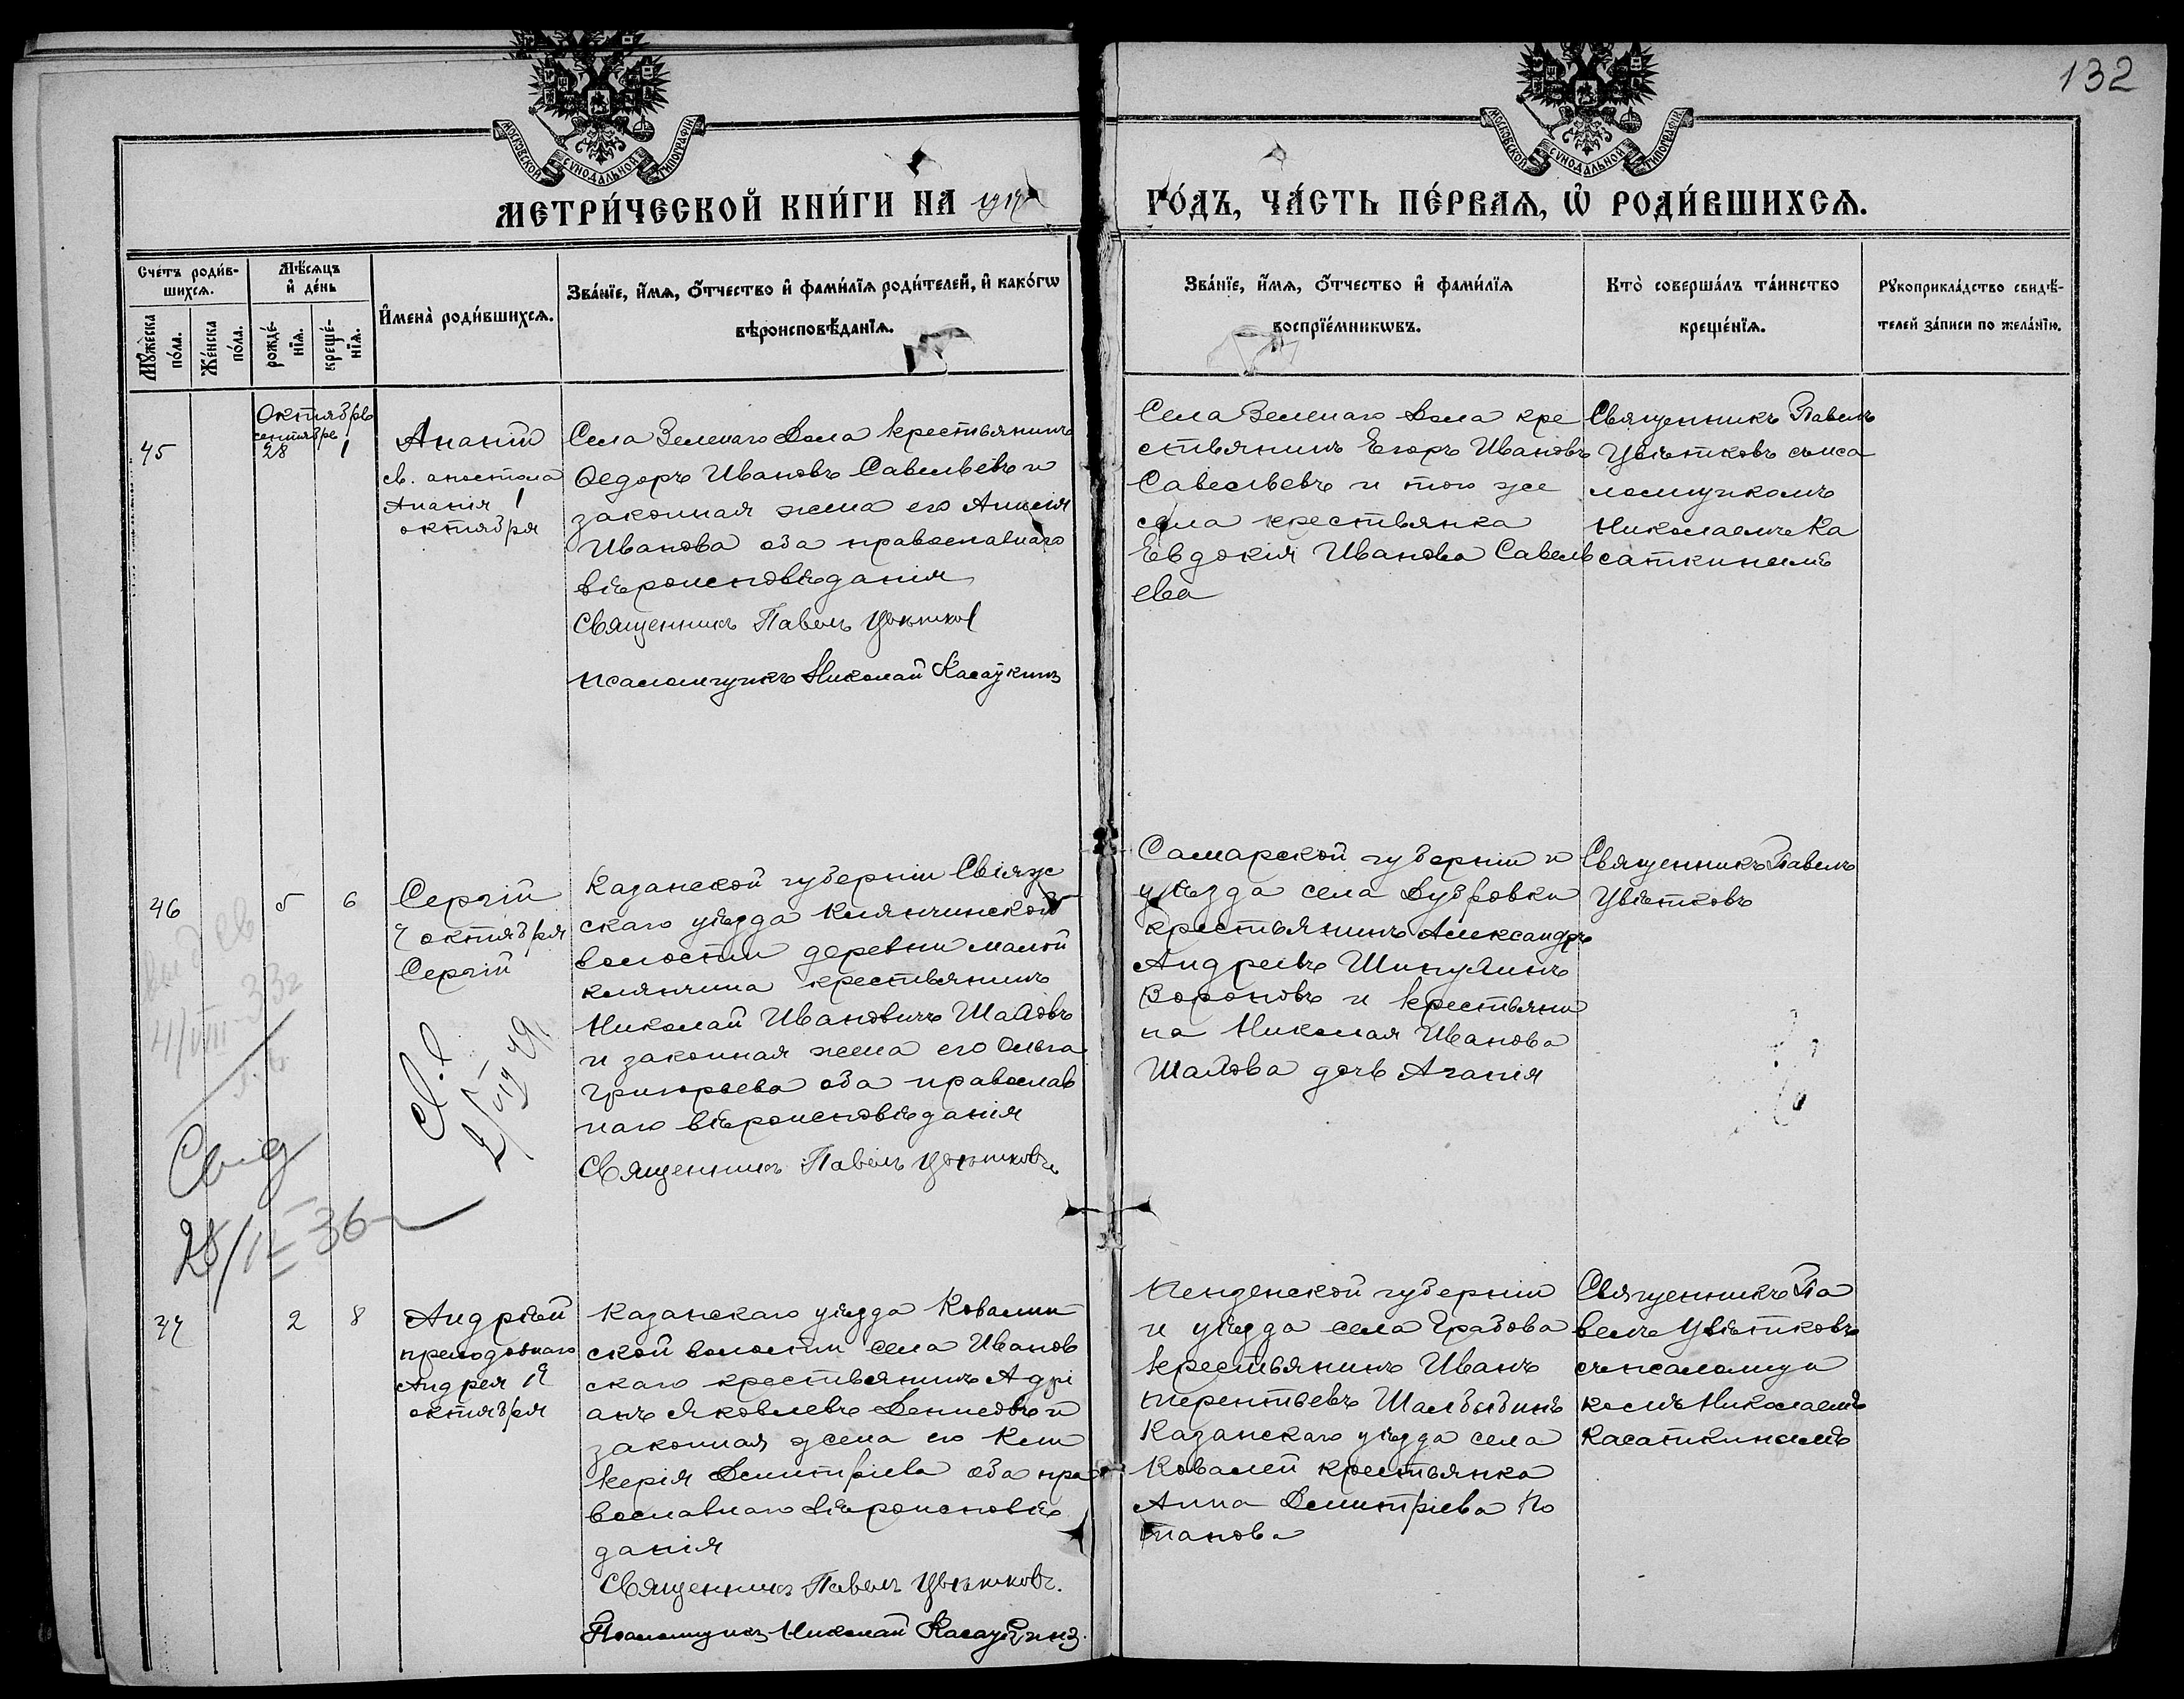 132
МОСКОВСКОЙ СУНОДАЛЬНОЙ ТИПОГРАФІИ
МОСКОВСКОЙ СУНОДАЛЬНОЙ ТИПОГРАФІИ
МЕТРИ́ЧЕСКОЙ КНИ́ГИ НА 1917
ГО́ДЪ, ЧА́СТЬ ПЕ́РВАѦ, Ѡ҆ РОДИ́ВШИХСѦ.
Сче́тъ роди́в-
шихсѧ.
Мѣ́сѧцъ
и҆ де́нь
И҆мена̀ роди́вшихсѧ.
Зва́нїе, и҆́мѧ, ѻ҆́тчество и҆ фами́лїѧ роди́телей, и҆ како́гѡ
вѣроисповѣ́данїѧ.
Мꙋ́жеска
по́ла.
Же́нска
по́ла.
рожде́-
нїѧ.
креще́-
нїѧ.
Зва́нїе, и҆́мѧ, ѻ҆́тчество и҆ фами́лїѧ
воспрїе́мникѡвъ.
Кто̀ соверша́лъ та́инство
креще́нїѧ.
Рꙋкоприкла́дство свидѣ́-
телей за́писи по жела́нїю.
Октябрь
сентябрь
45
28
1
Ананій
св. апостола
Ананія 1
октября
Села Зеленаго Дола крестьянинъ
Ѳедоръ Ивановъ Савельевъ и
законная жена его Анисія
Иванова оба православнаго
вѣроисповѣданія
Священникъ Павелъ Цвѣтков
псаломщикъ Николай Касаткинъ
Села Зеленаго Дола кре
стьянинъ Егоръ Ивановъ
Савельевъ и того же
села крестьянка
Евдокія Иванова Савель
ева
Священникъ Павелъ
Цвѣтковъ съ пса
ломщикомъ
Николаемъ Ка
саткинымъ
46
5
6
Сергій
7 октября
Сергій
Казанской губерніи Свіяж
скаго уѣзда Клянчинской
волости деревни малой
клянчина крестьянинъ
Николай Ивановичъ Шаловъ
и законная жена его Ольга
Григорьева оба православ
наго вѣроисповѣданія
Священникъ Павелъ Цвѣтковъ
Самарской губерніи и
уѣзда села Дубровки
крестьянинъ Александръ
Андреевъ Шипулинъ
Вороновъ и крестьяни
на Николая Иванова
Шалова дочь Агапія
Священникъ Павелъ
Цвѣтковъ
4/VIII 33г
Свид
28/IX 36
37
2
8
Андрѣй
преподобнаго
Андрея
октября
Казанскаго уѣзда Ковалин
ской волости села Иванов
скаго крестьянинъ Адрі
анъ Яковлевъ Денисовъ и
законная жена его Кли
керія Димитріева оба пра
вославнаго вѣроисповѣ
данія
Священникъ Павелъ Цвѣтковъ.
Псаломщикъ Николай Касаткинъ.
Пензенской губерніи
и уѣзда села Грабова
крестьянинъ Иванъ
терентьевъ Шалбыбинъ
Казанскаго уѣзда села
Ковалей крестьянка
Анна Димитріева По
тапова
Священникъ Па
велъ Цвѣтковъ
съ псаломщи
комъ Николаемъ
Касаткинымъ